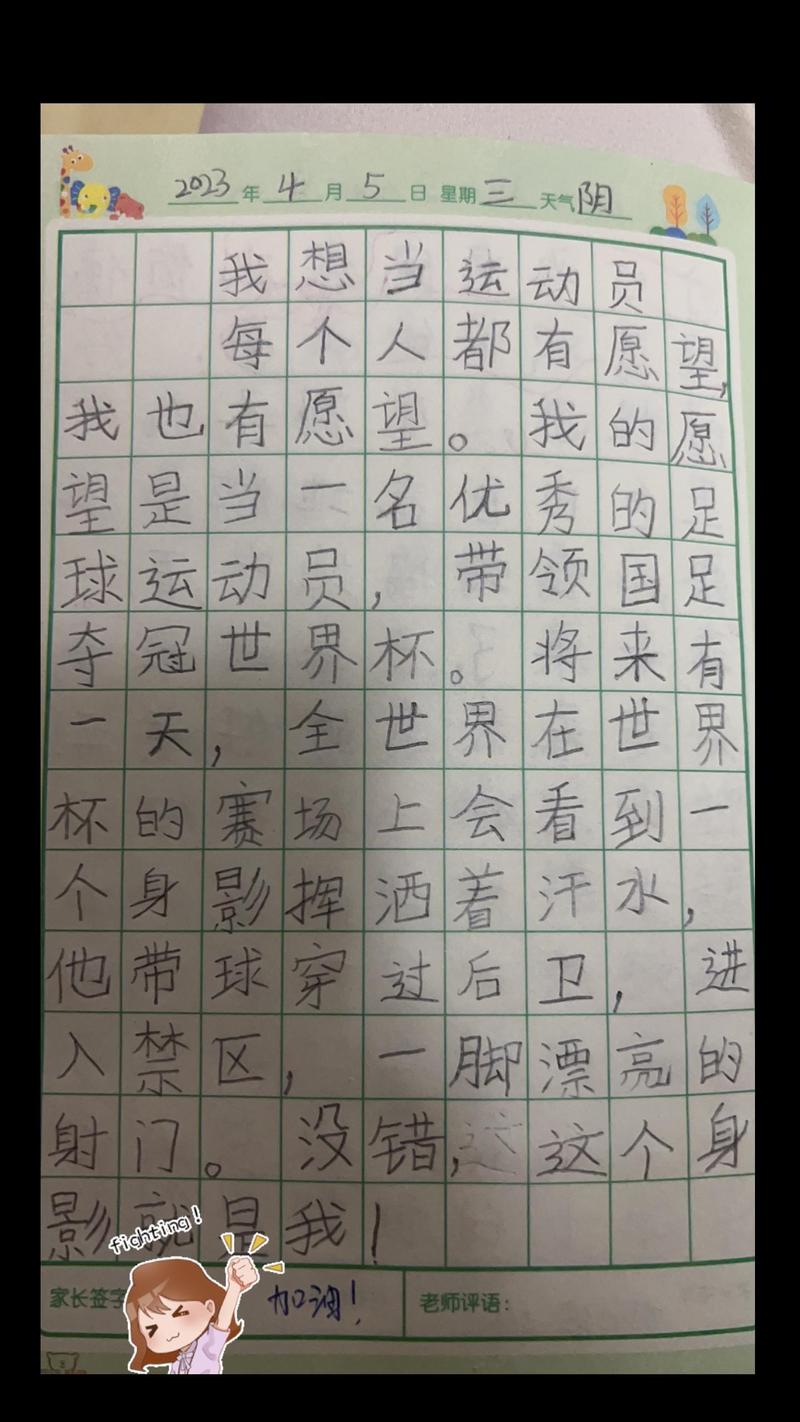 2023年4月5日 星期三 天气阴
我想当运动员
每个人都有愿望,
我也有愿望。我的愿
望是当一名优秀的足
球运动员,带领国足
夺冠世界杯。将来有
一天,全世界在世界
杯的赛场上会看到一
个身影挥洒着汗水,
他带球穿过后卫,进
入禁区,一脚漂亮的
射门。没错,这这个身
影就是我!
fighting!
家长签字 加油!
老师评语: